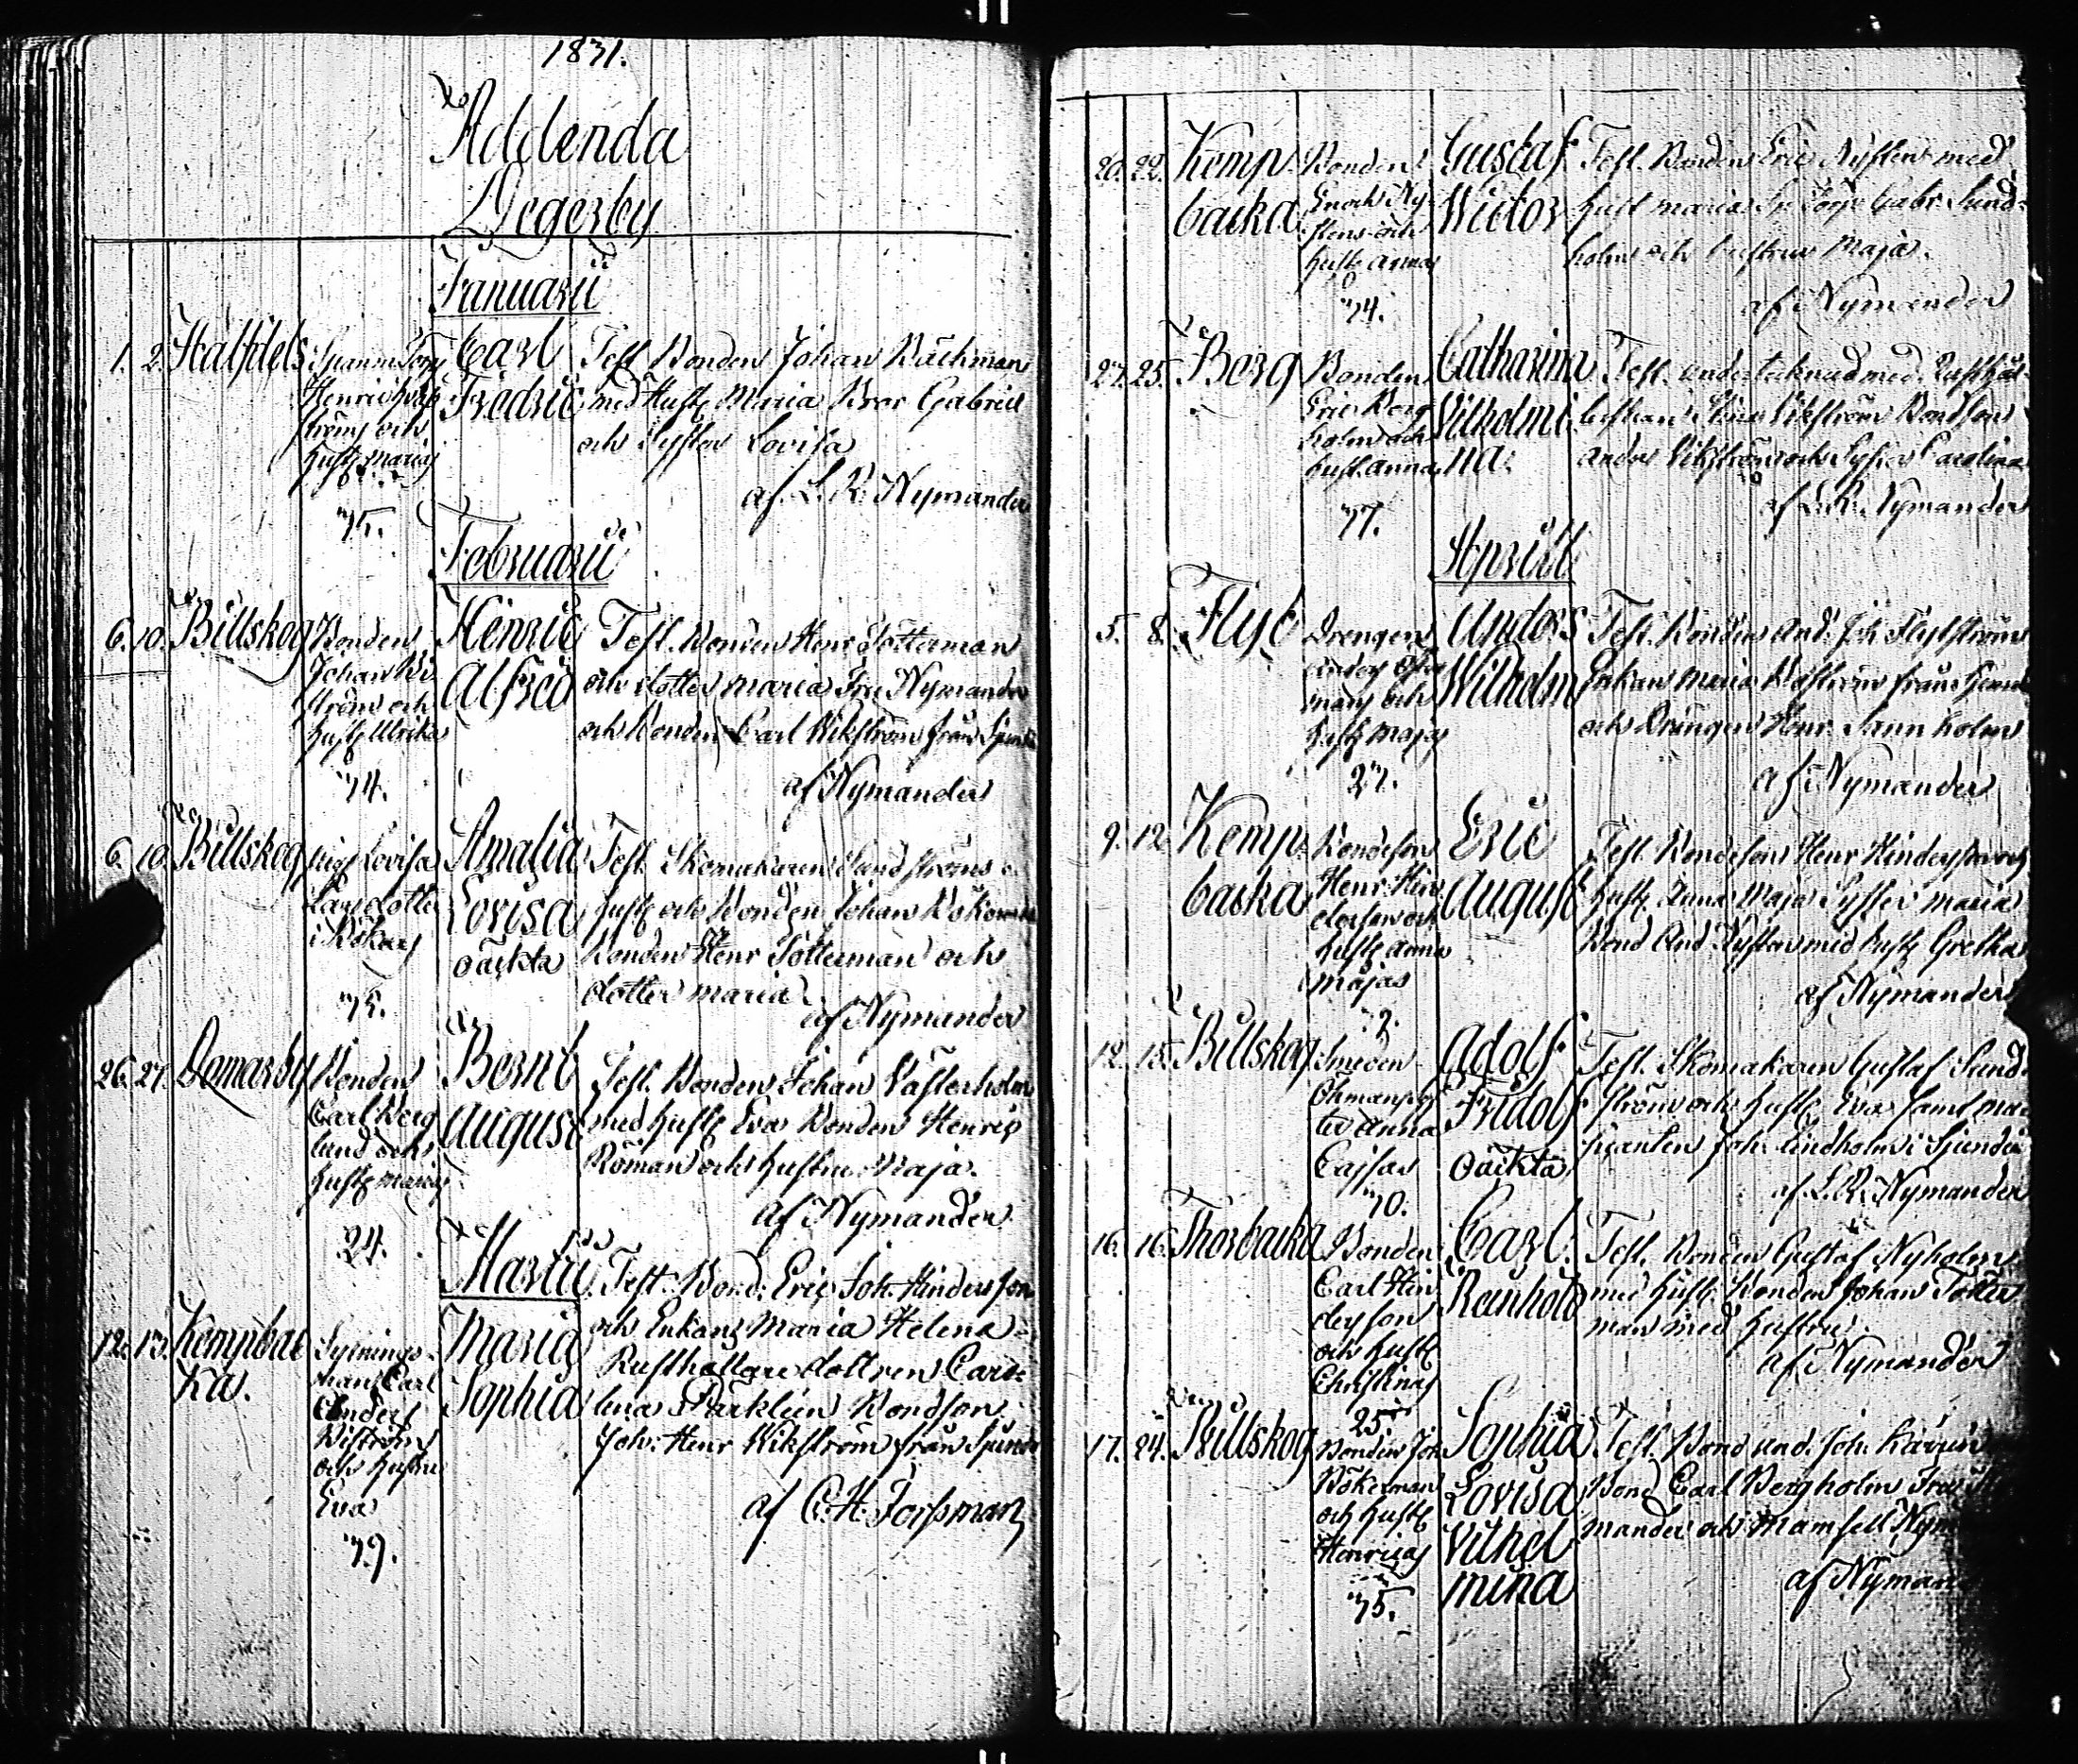 1831.
Addenda
Degerby
Januarii
1. 2. Halfdels
Henric
och
Hust: Maria
75.
Carl
Fredric
Test. Bonden Johan Bäckman
med Hust: Maria Bror Gabriel
och Syster Lovisa
af L. R. Nymander
Februarii
6. 10. Billskog
Bonden
Johan
ström och
Hust: Ulrika
74.
Henric
Alfred
Test. Bonden Henr Sötterman
och dotter Maria Fru Nymander
och Bonden Carl Wikström från
af Nymander
6. 10. Billskog
Pig: Lovisa
Larsdotter
i Bökars
75.
Amalia
Lovisa
oäkta
Test. Skomakaren Sundströms
hust: och Bonden Johan Bökerman
Bonden Henr Sötterman och
dotter Maria
af Nymander
26. 27. Domarby
Bonden
Carl Berg
lund och
Hust: Maria
24.
Bernt
August
Test. Bonden Johan Västerholm
med Hust: Eva Bonden Henric
Röman och hustru Maja.
af Nymander
Martii
12. 13. Kempbac
ka.
Carl
Anders
Wiström
och hustru
Eva
79.
Maria
Sophia
Test. Bond: Eric Joh. Hindersson
och Enkan Maria Helena
Rusthållare dottren Caro
lina Bondson
Joh: Henr Wikström från Sjundeå
af C. H. Forssman
20. 22. Kemp
backa
Bonden
Enoch Ny
stens och
Hust: Anna
74.
Gustaf
Wictor
Test. Bonden Eric Nysten med
hust Maria Gabr. Lund
holm och hustrun Maja.
af Nymander
23. 25. Berg
Bonden
Eric Berg
holm och
hust. Anna
77.
Catharina
Vilhelmi
na.
Test. undertecknad med
Stina Wikström Bondson
Anders Wikström och Syster Carolina
af L. R. Nymander
Aprill
5. 8. Flyt
Drengen
Anders
mans och
Hust: Maja
27.
Anders
Wilhelm
Test. Bonden And. Joh Flytström
Enkan Maria från
och Drängen Henr. holm
af Nymander
9. 12. Kemp
backa
Bondeson
Henr: Hin
dersson och
hust: Anna
Majas
2.
Eric
August
Test. Bondeson Henr Hindersson och
hust: Anna Maja Syster Maria
Bond And Nysten med hust: Gretha
af Nymander
12. 15. Billskog
Smeden
Öhmans dot
ter Anna
Cajsas
70.
Adolf
Fridolf
oäkta
Test. Skomakaren Gustaf Sund
ström och hust: Eva samt
Joh. Lindholm i Sjundeå
af L. R. Nymander
16. 16. Thorbacka
Bonden
Carl Hin
dersson
och hust:
Christinas
25.
Carl
Reinhold
Test. Bonden Gustaf Nyholm
med hust: Bonden Johan
man med hustru
af Nymander
17. 24. Billskog
Bonden Joh
Bökerman
och hust:
Henricas
75.
Sophia
Lovisa
Vilhel
mina
Test. Bond And. Joh.
Bond Carl Bergholm Fru
mander och Mamsell
af